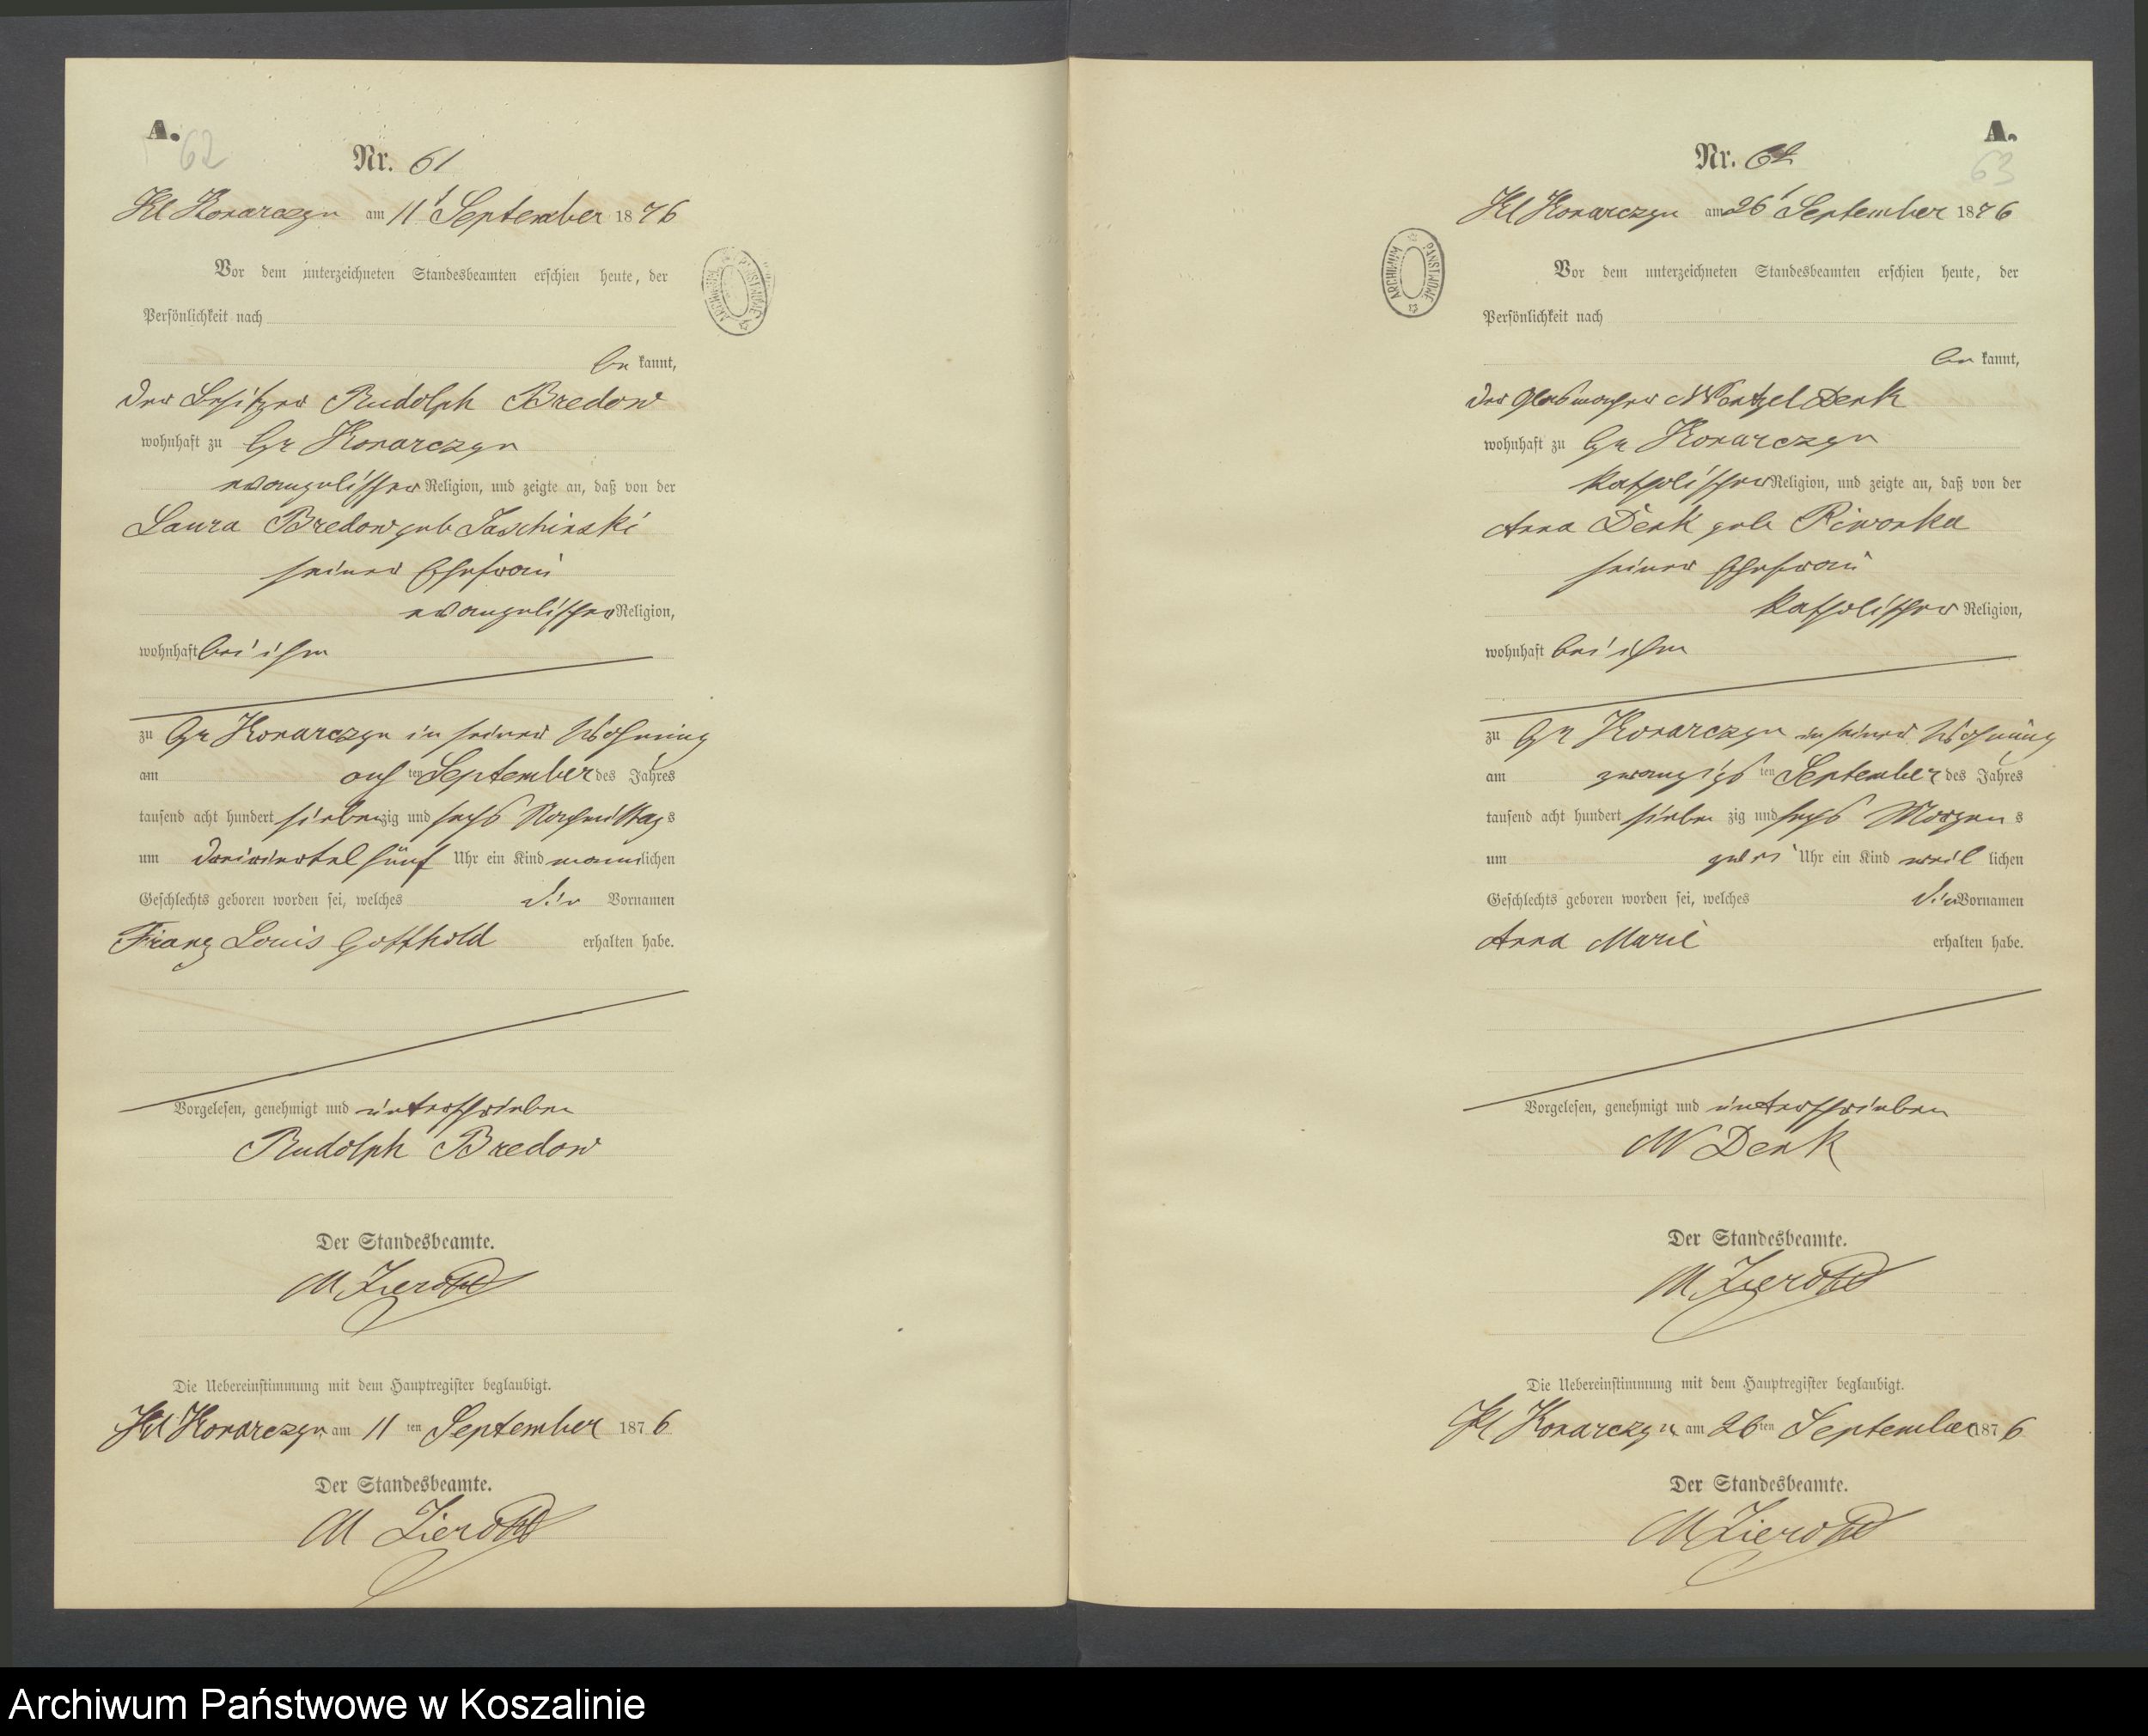 A.
62
Nr. 61
Kl Konarczyn am 11t September 1876
Vor dem unterzeichneten Standesbeamten erschien heute, der
Persönlichkeit nach
be kannt,
der Besitzer Rudolph Bredow
wohnhaft zu Gr Konarczyn
evangelischer Religion, und zeigte an, daß von der
Laura Bredow geb Jaschinski
seiner Ehefrau
evangelischer Religion,
wohnhaft bei ihm
zu Gr Konarczyn in seiner Wohnung
am ten September des Jahres
tausend acht hundert siebenzig und sechs Nachmittags
um dreiviertel fünf Uhr ein Kind männlichen
Geschlechts geboren worden sei, welches die Vornamen
Franz Louis Gotthold erhalten habe.
Vorgelesen, genehmigt und unterschrieben
Rudolph Bredow
Der Standesbeamte.
M
Die Uebereinstimmung mit dem Hauptregister beglaubigt.
Kl Konarczyn am 11 ten September 1876
Der Standesbeamte.
M
ARCHIWUM PAŃSTWOWE
A.
63
Nr. 62
Kl Konarczyn am 26t September 1876
Vor dem unterzeichneten Standesbeamten erschien heute, der
Persönlichkeit nach
be kannt,
der Glasmacher Wentzel Denk
wohnhaft zu Gr Konarczyn
katholischer Religion, und zeigte an, daß von der
Anna Denk geb Riwonka
seiner Ehefrau
katholischer Religion,
wohnhaft bei ihm
zu Gr Konarczyn in seiner Wohnung
am zwanzigs ten September des Jahres
tausend acht hundert sieben zig und sechs Morgen s
um zwei Uhr ein Kind weib lichen
Geschlechts geboren worden sei, welches die Vornamen
Anna Marie erhalten habe.
Vorgelesen, genehmigt und unterschrieben
W Denk
Der Standesbeamte.
M
Die Uebereinstimmung mit dem Hauptregister beglaubigt.
Kl Konarczyn am 26ten September 1876
Der Standesbeamte.
M
ARCHIWUM PAŃSTWOWE
Archiwum Państwowe w Koszalinie